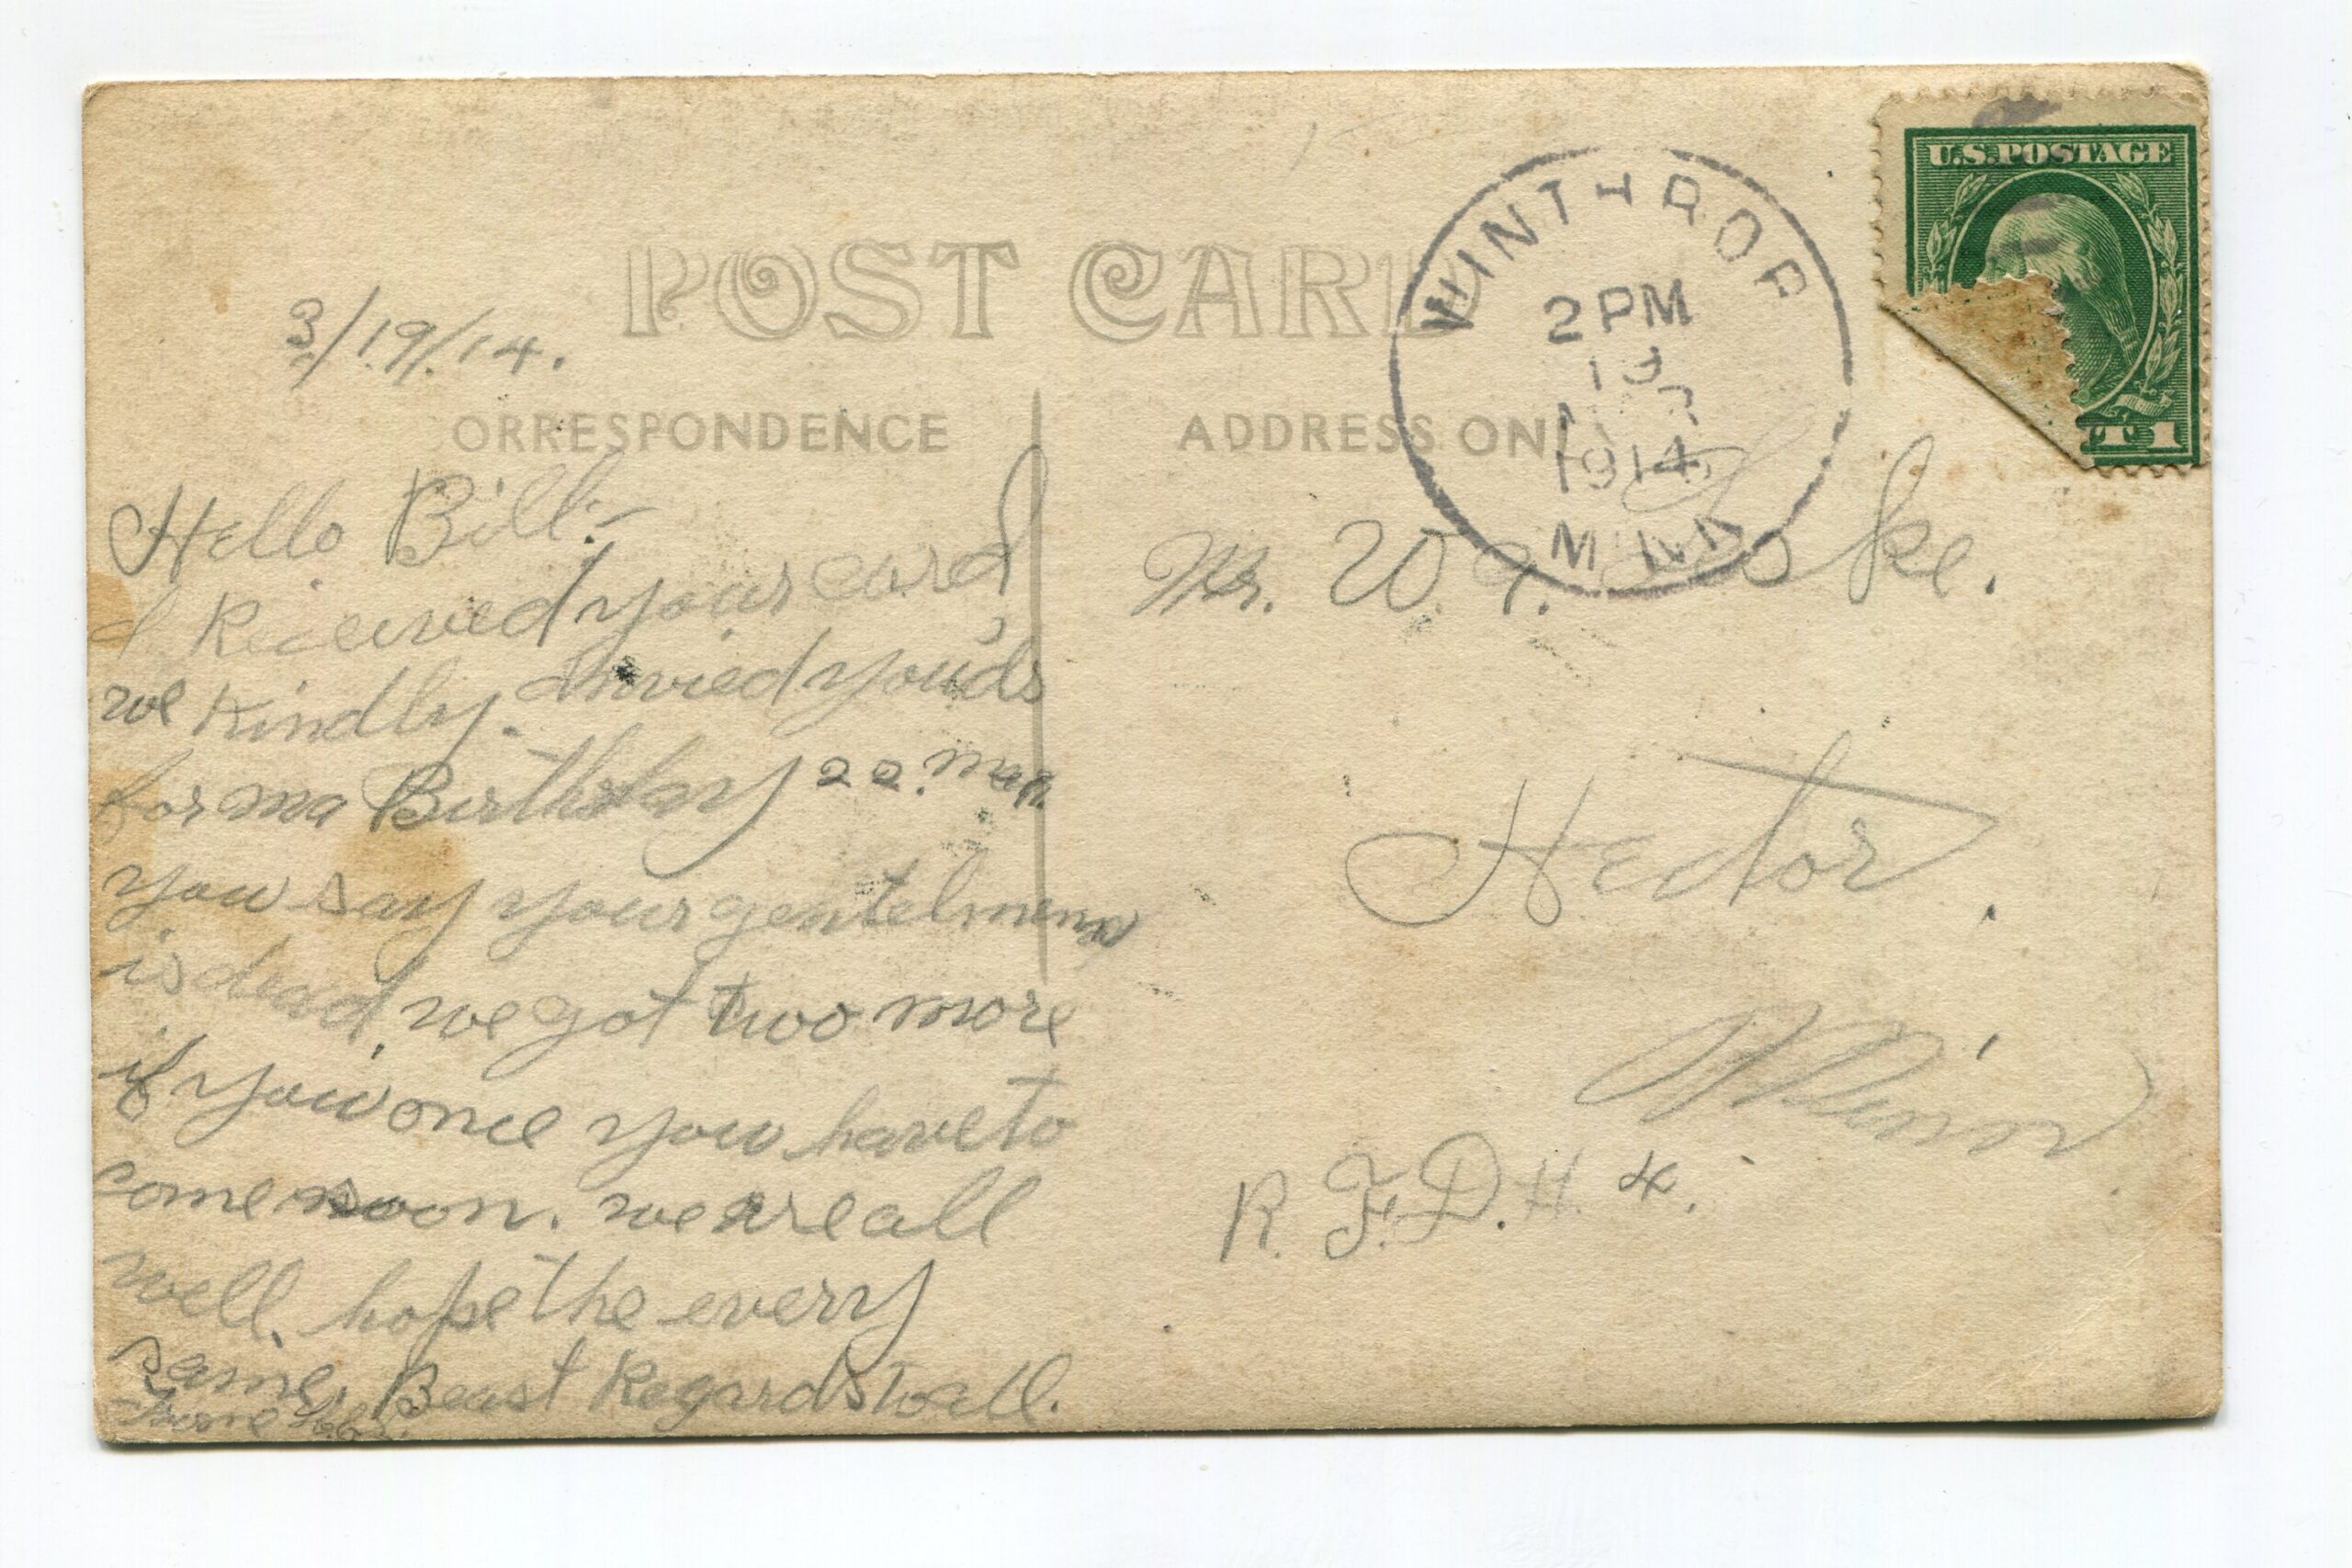 POST CARD
3/19/14.
ORRESPONDENCE
Hello Bill:-
I Received your card
we Kindly.
for ma Birthday 22. Mar.
you say your gentelmenn
is dead, we got two more
if you once you have to
come soon. we are all
well. hope the every
same. Beast Regards to all.
ADDRESS ON
WINTHROP
2 PM
19
1914
MINN
U.S. POSTAGE
T 1
Mr. W.
Hector.
Minn
R. F. D. # 4.